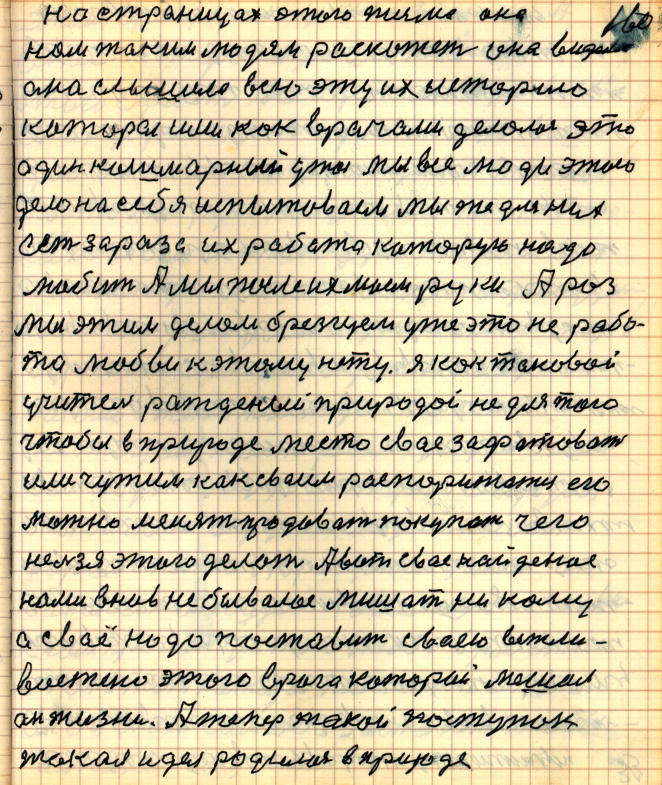 160
на страницах этого тиама она
ном таким людям раскожет она видела
она слышела всю эту их историю
которая ими кок врачами делолас это
один кошмарный ужас мы все люди этого
дело на себя испытоваем мы же для них
сет зараза их рабата которую надо
любит А мы тоже их моем руки А роз
мы этим делом брезгуем уже это не рабо-
та любви к этому нету. я кок таковой
учител ражденый природой не для того
чтобы в природе место свае захватоват
или чужим как сваим распоритатся его
можно менят продоват покупат чего
нелзя этого делат А вот свае найденое
нами внов небывалое мишат ни кому
а сваё нодо поставит сваею вежли-
востею этого врага которой мешал
ан жизни. А тепер такой поступок
такая идея родилас в природе